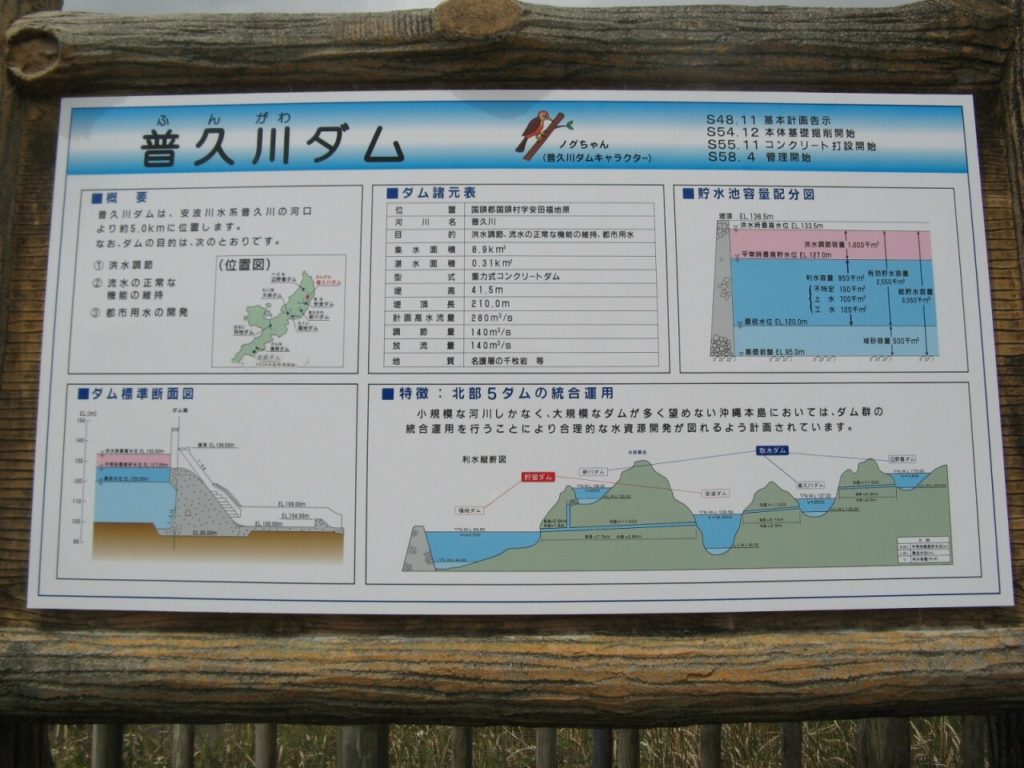 ふんがわ
普久川ダム
ノグちゃん
(普久川ダムキャラクター)
S48.11 基本計画告示
S54.12 本体基礎掘削開始
S55.11 コンクリート打設開始
S58. 4 管理開始
■概 要
普久川ダムは、安波川水系普久川の河口
より約5.0kmに位置します。
なお、ダムの目的は、次のとおりです。
① 洪水調節
② 流水の正常な
機能の維持
③ 都市用水の開発
(位置図)
辺野喜ダム
普久川ダム
大保ダム
安波ダム
新川ダム
福地ダム
羽地ダム
漢那ダム
■ダム諸元表
位 置 国頭郡国頭村字安田福地原
河 川 名 普久川
目 的 洪水調節、流水の正常な機能の維持、都市用水
集 水 面 積 8.9km²
湛 水 面 積 0.31km²
型 式 重力式コンクリートダム
堤 高 41.5m
堤 頂 長 210.0m
計画高水流量 280m³/s
調 節 量 140m³/s
放 流 量 140m³/s
地 質 名護層の千枚岩 等
■貯水池容量配分図
堤頂 EL.136.5m
洪水時最高水位 EL.133.5m
洪水調節容量 1,600千m³
平常時最高貯水位 EL.127.0m
利水容量 950千m³
不特定 150千m³
上 水 700千m³
工 水 100千m³
有効貯水容量
2,550千m³
総貯水容量
3,050千m³
最低水位 EL.120.0m
堆砂容量 500千m³
基礎岩盤 EL.95.0m
■ダム標準断面図
EL.(m)
ダム軸
150
140
130
120
110
100
90
80
洪水時最高水位 EL.133.50m
平常時最高貯水位 EL.127.00m
最低水位 EL.120.00m
EL.109.00m
EL.104.00m
EL.100.00m
EL.95.00m
■特徴：北部5ダムの統合運用
小規模な河川しかなく、大規模なダムが多く望めない沖縄本島においては、ダム群の
統合運用を行うことにより合理的な水資源開発が図れるよう計画されています。
利水縦断図
貯留ダム
取水ダム
福地ダム
新川ダム
安波ダム
普久川ダム
辺野喜ダム
凡 例